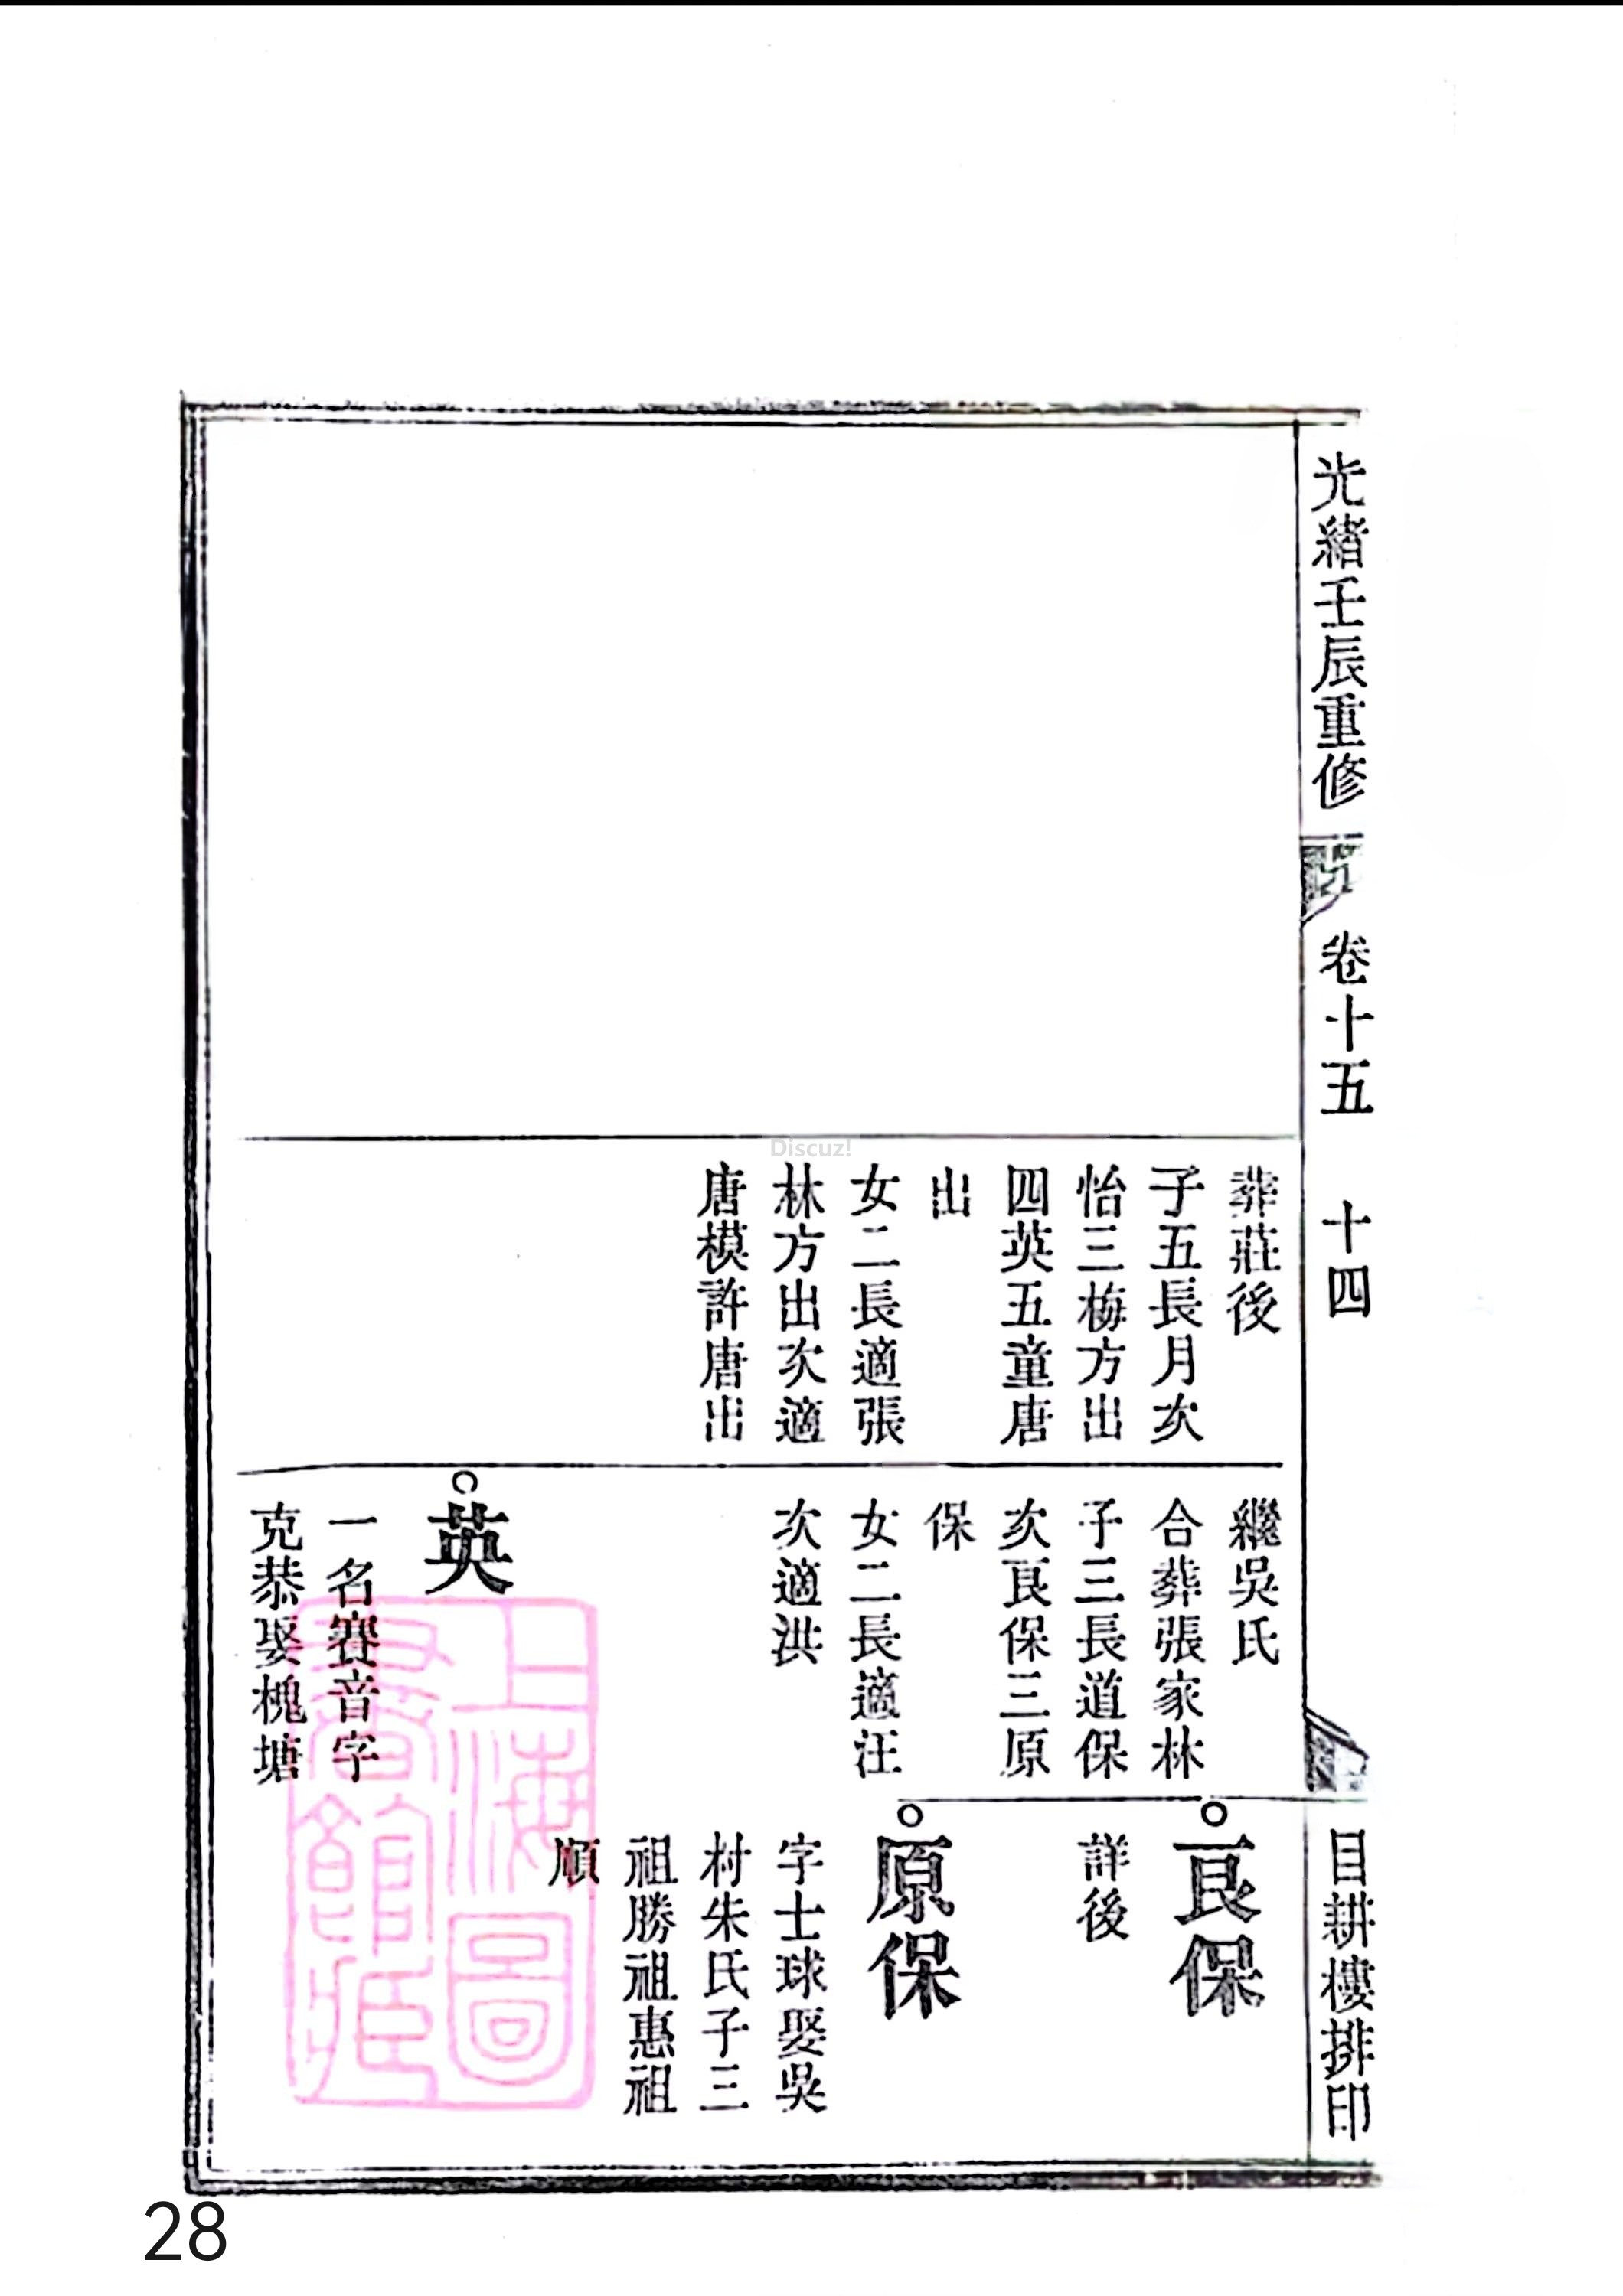 光緒壬辰重修
卷十五
十四
目耕樓排印
葬莊後
子五長月次
怡三梅方出
四英五童唐
出
女二長適張
林方出次適
唐模許唐出
繼吳氏
合葬張家林
子三長道保
次良保三原
保
女二長適汪
次適洪
英
一名賽音字
克恭娶槐塘
良保
詳後
原保
字士球娶吳
村朱氏子三
祖勝祖惠祖
順
上海圖
書館藏
Discuz!
28